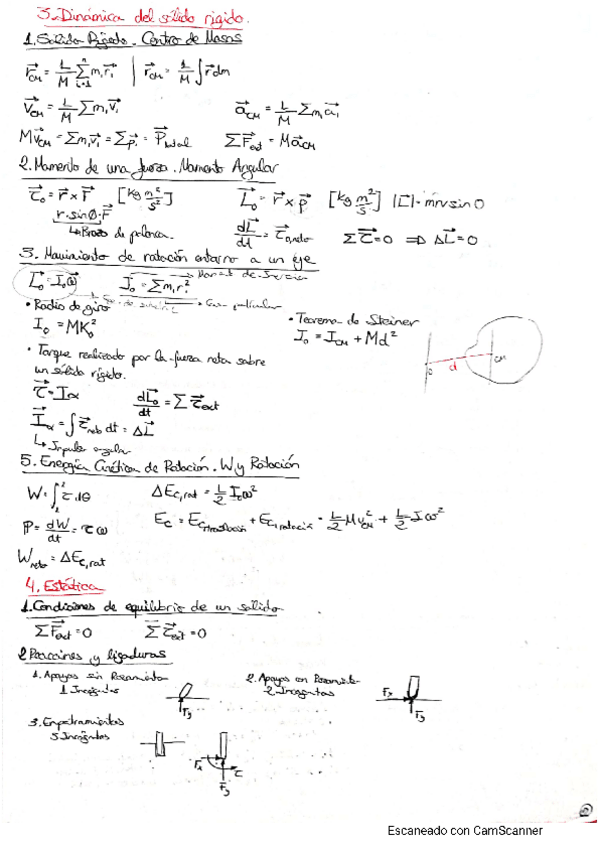 3. Dinámica del sólido rígido.
1. Sólido Rígido. Centro de Masas
r⃗CM = 1/M Σ(i=1→n) mᵢr⃗ᵢ | r⃗CM = 1/M ∫ r⃗ dm
v⃗CM = 1/M Σ mᵢv⃗ᵢ   a⃗CM = 1/M Σ mᵢa⃗ᵢ
Mv⃗CM = Σmᵢv⃗ᵢ = Σp⃗ᵢ = P⃗total   ΣF⃗ext = Ma⃗CM
2. Momento de una fuerza. Momento Angular
τ⃗o = r⃗ × F⃗ [kg m²/s²]   L⃗o = r⃗ × p⃗ [kg m²/s] |L⃗| = mrv sin θ
r · sin Ø · F
↳ Brazo de palanca.   dL⃗/dt = τ⃗o,neto   Στ⃗ = 0 ⇒ ΔL⃗ = 0
3. Movimiento de rotación entorno a un eje
L⃗o = Ioω⃗   Io = Σmᵢrᵢ² → Moment. de Inercia
↳ Eje de simetría → Caso particular
• Radio de giro
Io = MKo²
• Teorema de Steiner
Io = ICM + Md²
O d CM
• Torque realizado por la fuerza neta sobre
un sólido rígido.
τ⃗ = Iα   dL⃗o/dt = Στ⃗ext
I⃗α = ∫ τ⃗neto dt = ΔL⃗
↳ Impulso angular
5. Energía Cinética de Rotación. W y Rotación
W = ∫₁² τ · dθ   ΔEc,rot = 1/2 Ioω²
P = dW/dt = τω   Ec = Ec,traslación + Ec,rotación = 1/2 Mv²CM + 1/2 Iω²
Wneto = ΔEc,rot
4. Estática
1. Condiciones de equilibrio de un sólido
ΣF⃗ext = 0   Στ⃗ext = 0
2. Reacciones y ligaduras
1. Apoyos sin Rozamiento
1 Incógnitas
Fy
2. Apoyos con Rozamiento
2 Incógnitas
Fx
Fy
3. Empotramientos
3 Incógnitas
Fx
Fy
τ
Escaneado con CamScanner